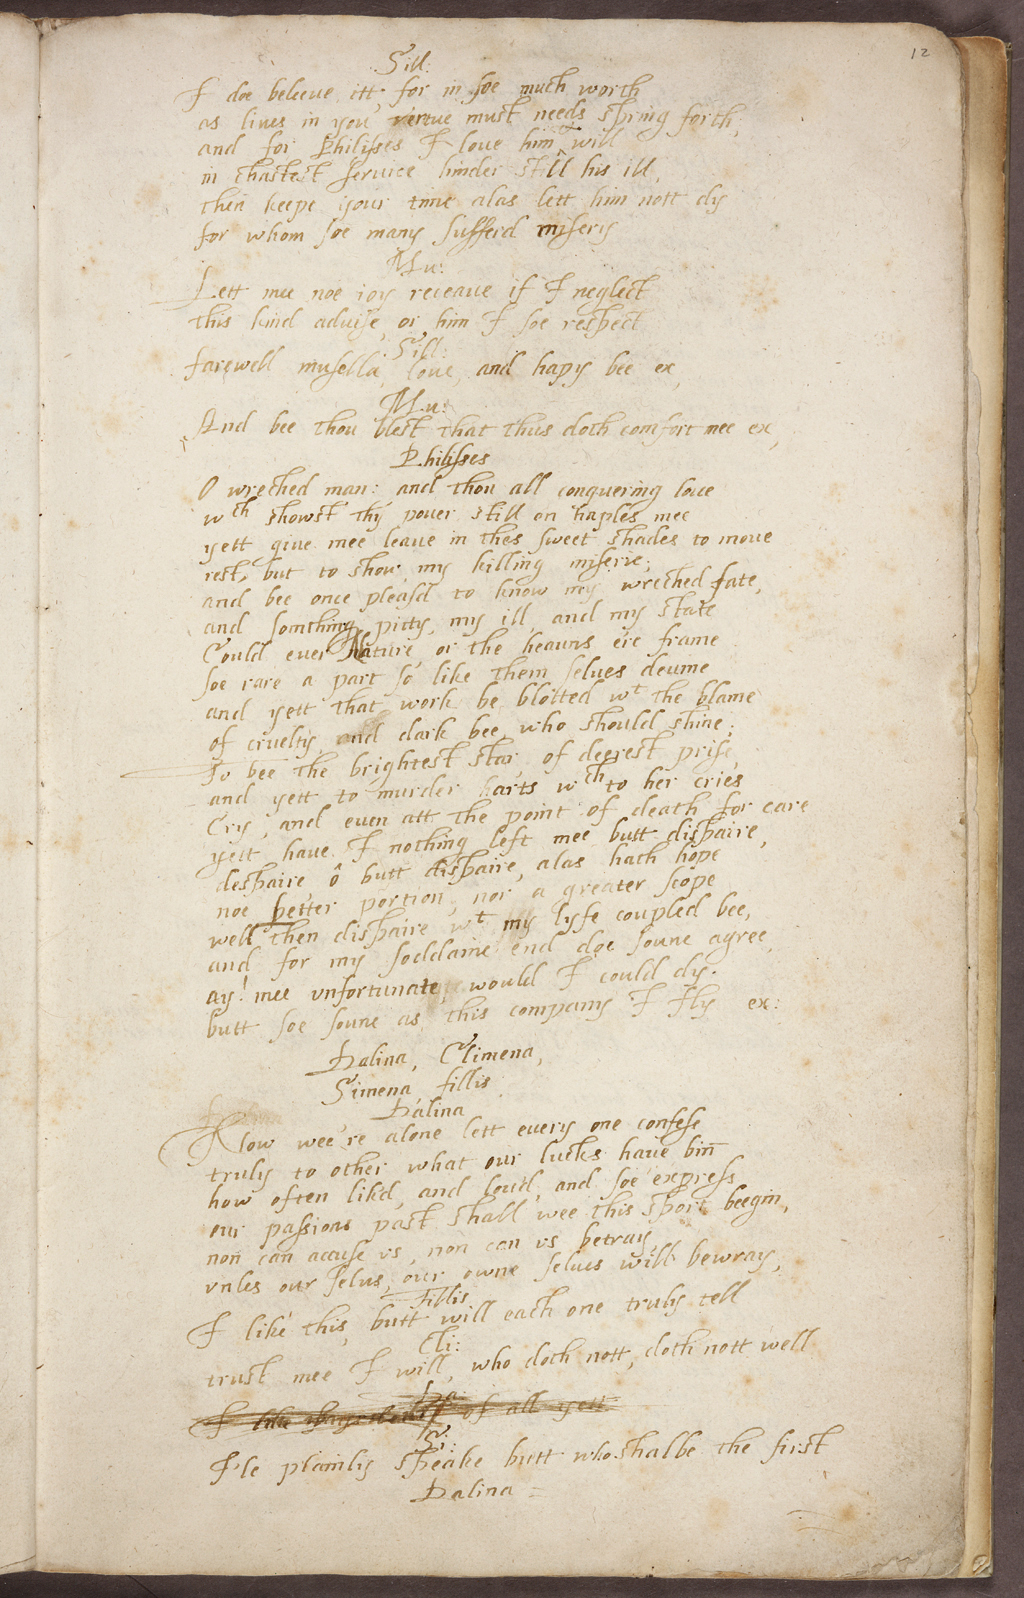 12
Sill:
I doe beleeve itt, for in soe much worth
as lives in you, vertue must needs spring forth,
and for Philisses I love him, will
in chastest service hinder still his ill,
then keepe your time alas lett him nott dy
for whom soe many sufferd misery
Mu:
Lett mee noe joy receave if I neglect
this kind advise, or him I soe respect
Sill:
farewell musella, love, and hapy bee ex,
Mu:
And bee thou blest that thus doth comfort mee ex,
Philisses
O wreched man: and thou all conquering love
wch showst thy power still on haples mee
yett give mee leave in thes sweet shades to move
rest, but to show my killing miserie,
and bee once pleasd to know my wreched fate,
and somthing pitty, my ill, and my state
Could ever Nature, or the heavns ere frame
soe rare a part so like them selves devine
and yett that work be blotted wt the blame
of cruelty, and dark bee, who should shine;
To bee the brightest star, of deerest prise,
and yett to murder harts wch to her cries
Cry, and even att the point of death for care
yett have I nothing left mee butt dispaire,
despaire, ô butt dispaire, alas hath hope
noe better portion, nor a greater scope
well then dispaire wt my lyfe coupled bee,
and for my soddaine end doe soune agree,
ay! mee unfortunate, would I could dy.
butt soe soune as this company I fly ex:
Dalina, Climena,
Simena, fillis
Dalina
Now wee're alone lett every one confese
truly to other what our lucks have bin̄
how often likd, and lov'd, and soe express
our passions past shall wee this sport beegin,
non can accuse us, non can us betray
unles our selvs, our owne selves will bewray,
Fillis
I like this, butt will each one truly tell
Cli:
trust mee I will, who doth nott, doth nott well
Da:
I like of all yett
Si:
Ile plainly speake butt who shalbe the first
Dalina =